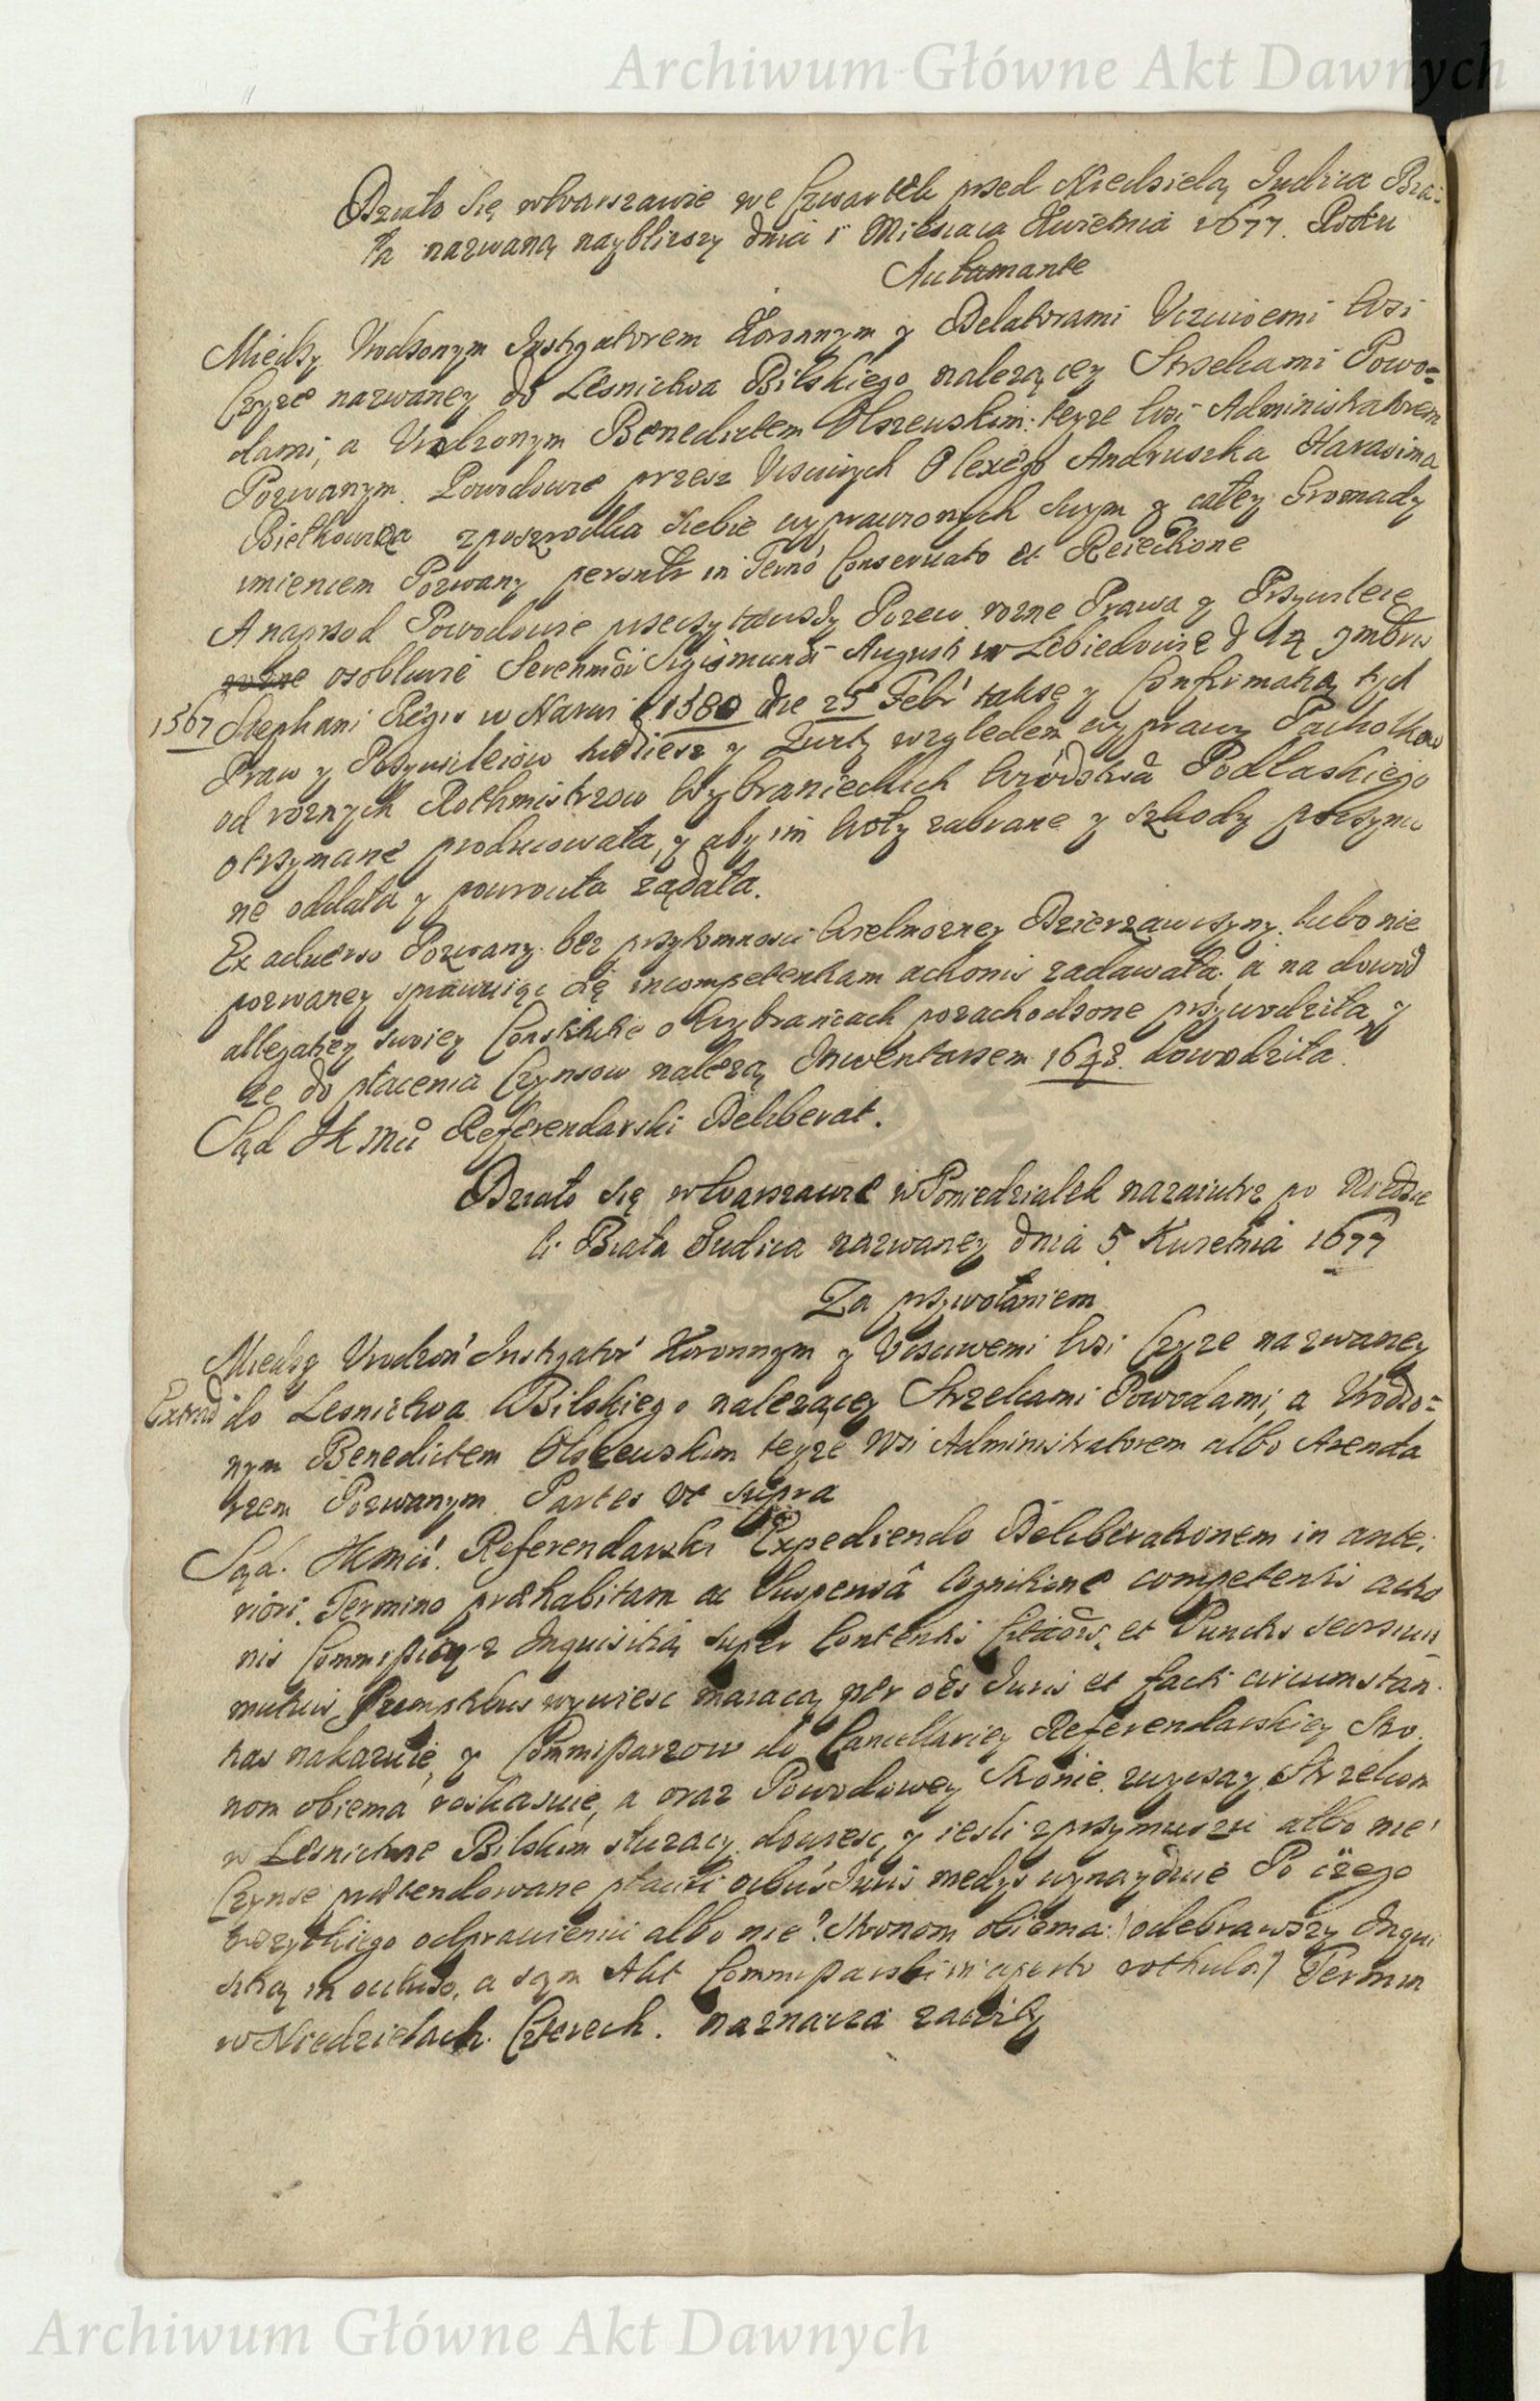 Archiwum Główne Akt Dawnych
Działo Się w Warszawie we Czwartek przed Niedzielą Iudica Bia-
ła nazwaną naybliższy dnia 1 Miesiaca Kwietnia 1677. Roku
Aclamante
Między Urodzonym Instygatorem Koronnym y Delatorami Uczciwemi Wsi
Czyze nazwaney do Lesnictwa Bilskiego nalezącey Strzelcami Powo-
dami, a Urodzonym Benedictem Olszewskim teyże Wsi Administratorem
Pozwanym. Powodowie przez Uczciwych Olexego Andruszka Harasima
Bielkowicza zposzrodka siebie wyprawionych swym y całey Gromady
imieniem Pozwany personlr in Termo Conservato et Reiectione
A naprzod Powodowie przeczytawszy Pozew rozne Prawa y Przywileie
osobliwie Serenmoi Sigismundi Augusti w Lebiedziwie d 12 9mbris
1567 Stephani Regis w Narwi 1580 die 25 Febr takze y Confirmatią tych
Praw y Przywileiow tudziesz y Quity względem wyprawy Pachołkow
od roznych Rothmistrzow Wybranieckich Woiewodstwa Podlaskiego
otrzymane producowała, y aby im Woły zabrane y szkody poczynio
ne oddała y powrociła ządała.
Ex adverso Pozwany bez przytomnosci Wielmozney Dzierzawczyny lubo nie
pozwaney sprawuiąc się incompetentiam actionis zadawała, a na dowod
allegatiey swoiey Constitutie o Wybrańcach pozachodzone przywodziła, y
ze do płacenia Czynszow nalezą Inwentarzem 1642. dowodziła.
Sąd JKMci Referendarski Deliberat.
Działo się w Warszawie w Poniedziałek nazaiutrz po Niedzie
li Biała Iudica nazwaney dnia 5 Kwietnia 1677
Za przywołaniem
Między Urodzon Instygator Koronnym y Uczciwemi Wsi Czyze nazwaney
Extrad do Lesnictwa Bilskiego nalezącey Strzelcami Powodami, a Urodzo-
nym Benedictem Olszewskim teyze Wsi Administratorem albo Arenda
rzem Pozwanym. Partes vt supra
Sąd JKMci Referendarski Expediendo Deliberationem in ante-
riori Termino præhabitam ac Suspensâ Cognitione competentis actio
nis Commissią z Inquisitią super Contentis Citaōis et Punctis seorsim
mutuis Sumptibus wywiesc maiacą per oēs Iuris et facti circumstan
tias nakazuie, y Commissarzow do Cancellariey Referendarskiey Stro
nom obiema roskazuie, a oraz Powodowey Stronie zwyczay Strzelcom
w Lesnictwie Bilskim słuzacy dowiesc, y iesli zprzymuszu albo nie
Czynsze prætendowane płacili quibus Iuris medys wynaydzie Po czego
wszytkiego odprawieniu albo nie? Stronom obiema /: odebrawszy Inqui
sitią in occluso, a sąm Akt Commissarski in aperto rothulo :/ Termin
w Niedzielach Czterech. naznacza zawity
Archiwum Główne Akt Dawnych